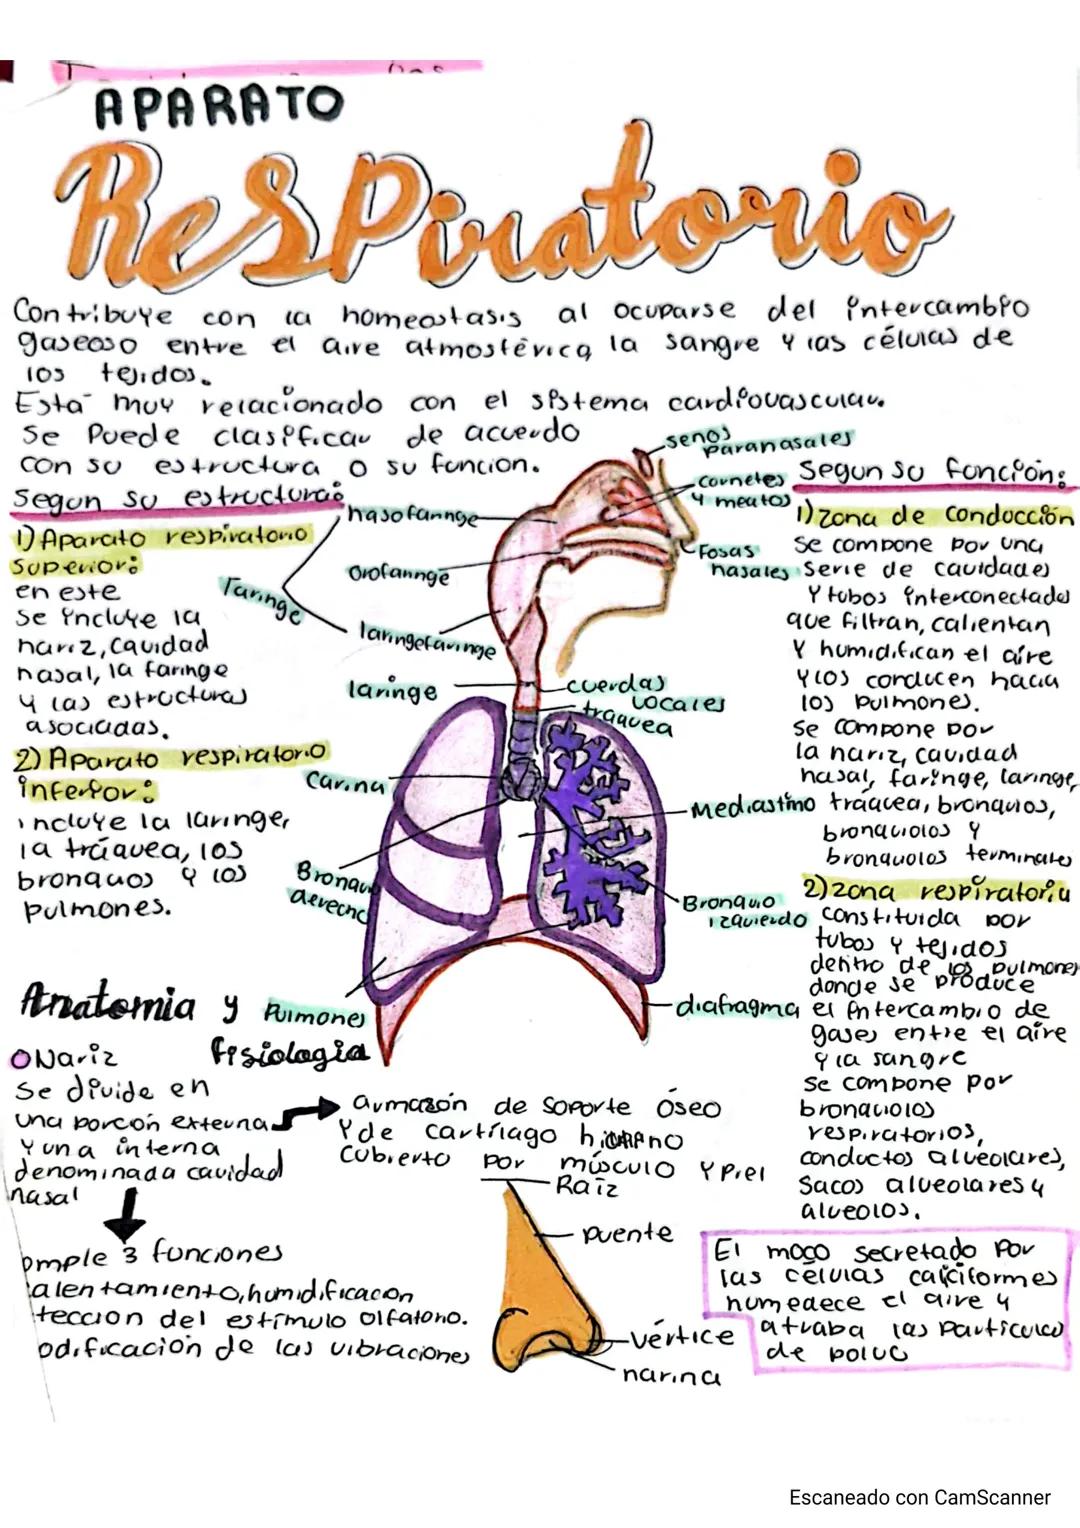 APARATO
ResPiratorio
Contribuye con la homeostasis al ocuparse del intercambio
gaseoso entre el aire atmosférico, la sangre y las células de
los tejidos.
Está muy relacionado con el sistema cardiovascular.
Se Puede clasificar de acuerdo
con su estructura o su función.
Segun su estructura:
1) Aparato respiratorio
superior:
en este
se incluye la
nariz, cavidad
nasal, la faringe
y las estructuras
asociadas.
2) Aparato respiratorio
inferior:
incluye la laringe,
la tráquea, los
bronquos y los
pulmones.
senos
paranasales
cornetes
y meatos
nasofaringe
Orofaringe
Faringe
laringofaringe
Fosas
nasales
laringe
cuerdas
vocales
traquea
carina
Mediastino
Bronquio
derecho
Bronquio
izquierdo
Pulmones
diafragma
Segun su función:
1) zona de conducción
se compone por una
serie de cavidades
y tubos interconectados
que filtran, calientan
y humidifican el aire
y los conducen hacia
los pulmones.
se compone por
la nariz, cavidad
nasal, faringe, laringe,
tráquea, bronquios,
bronquiolos y
bronquolos terminales
2) zona respiratoria
constituida por
tubos y tejidos
dentro de los pulmones
donde se produce
el intercambio de
gases entre el aire
y la sangre
se compone por
bronquiolos
respiratorios,
conductos alveolares,
sacos alveolares y
alveolos.
Anatomia y
fisiologia
Nariz
Se divide en
una porcón externa
y una interna
denominada cavidad
nasal
armazón de soporte óseo
y de cartílago hialino
cubierto por músculo y piel
omple 3 funciones
alentamiento, humidificación
tección del estímulo olfatorio.
odificación de las vibraciones
Raíz
puente
vértice
narina
El moco secretado por
las células caliciformes
humedece el aire y
atraba las particulas
de polvo
Escaneado con CamScanner